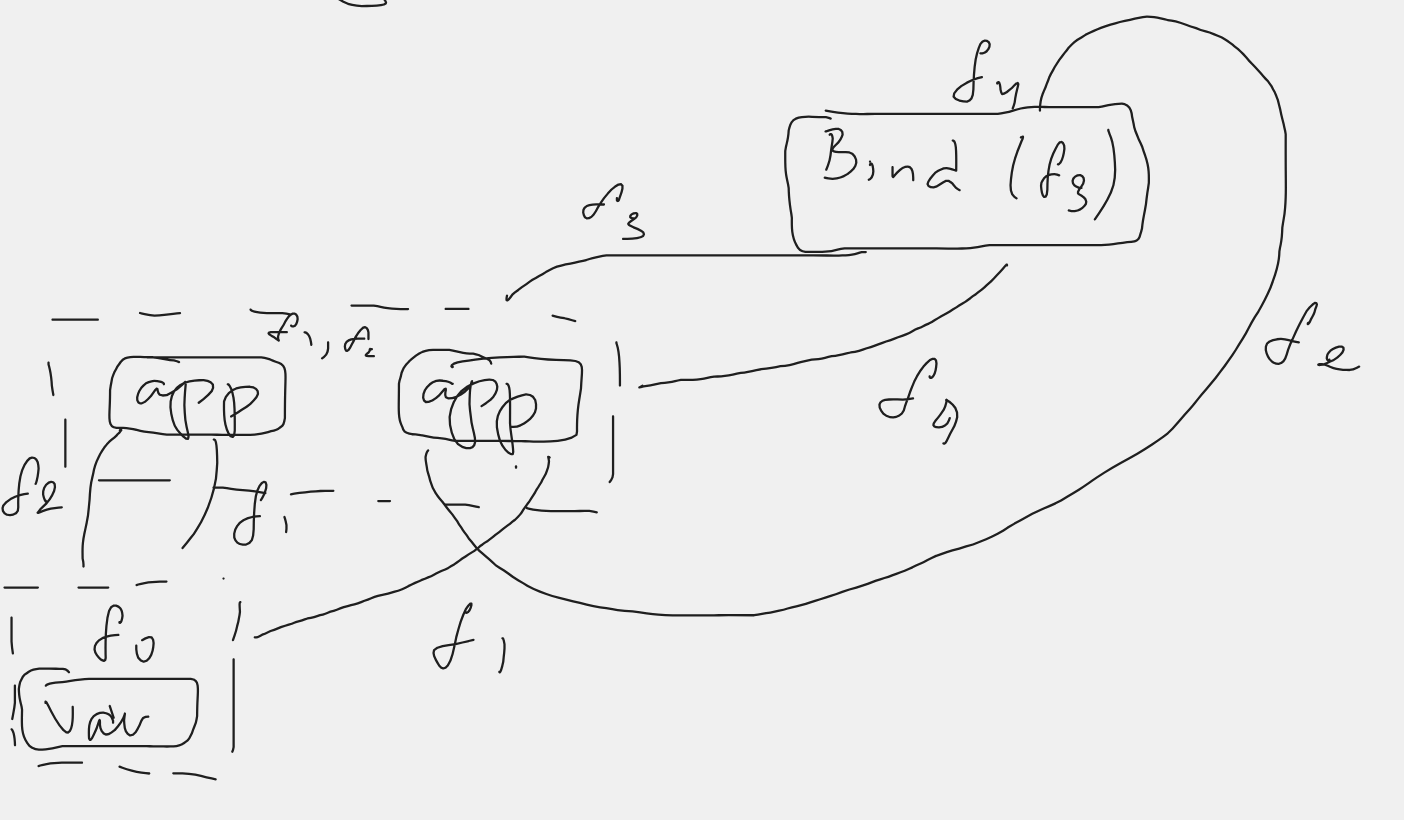 f4
Bind (f3)
f3
f1, f2
app
app
fe
f2
f1
f0
f1
var